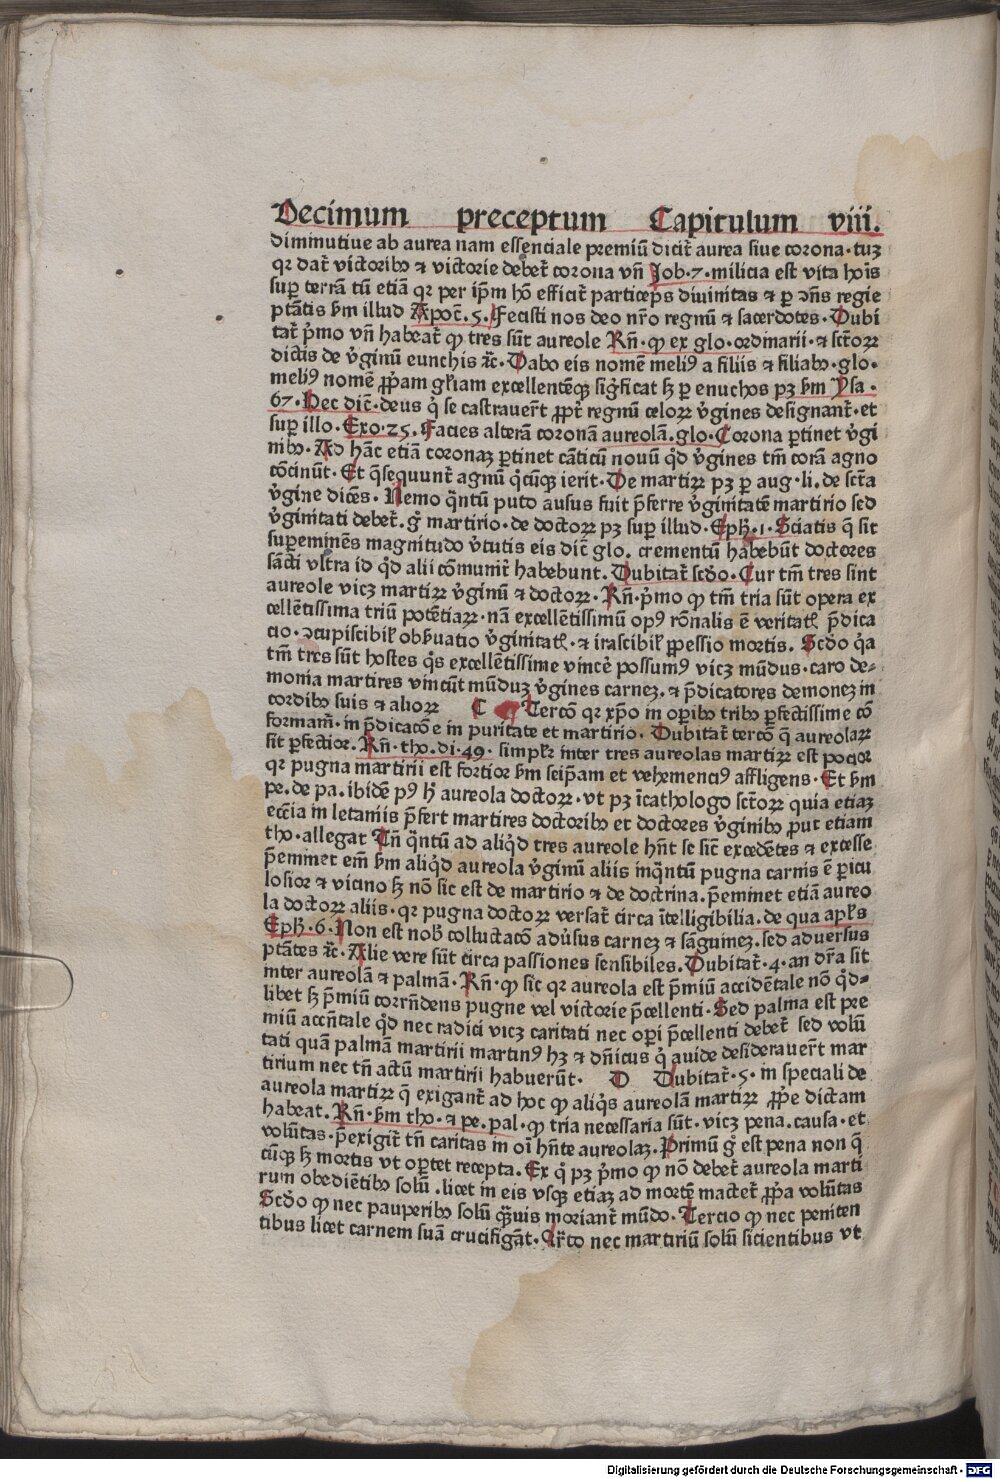 Decimum preceptum Capitulum viii.
diminutiue ab aurea nam essenciale premiū dicit̃ aurea siue corona · tuꝫ
qꝛ dat̃ victoribꝰ ⁊ victorie debet̃ corona vñ Job · 7 · milicia est vita hoīs
suꝑ terrā tū etiā qꝛ per ip̄m hō efficit̃ particep̄s diuinitas ⁊ ꝑ ꝯñs regie
ptātis ẜm illud Apoc̄ . 5 . Fecisti nos deo nr̄o regnū ⁊ sacerdotes . Dubi
tat̃ p̄mo vñ habeat̃ ꝙ tres sūt aureole Rñ · ꝙ ex glo · ordinarii · ⁊ sct̄oꝝ
dictis de v̓ginū eunchis ⁊c̄ · Dabo eis nomē meliꝰ a filiis ⁊ filiabꝰ · glo ·
meliꝰ nomē ꝓp̄am gl̄iam excellentēqꝫ siḡficat sꝫ ꝑ enuchos pꝫ ẜm Ysa ·
67 · Hec dic̄t · deus q̓ se castrauer̄t ꝓpt̃ regnū celoꝝ v̓gines designant̃ · et
suꝑ illo · Exo · 25 . Facies alterā coronā aureolā . glo · Corona ꝑtinet v̓gi
nibꝰ · Ad hāc etiā coronaꝫ ꝑtinet cāticū nouū qd̓ v̓gines tm̄ corā agno
cōcinūt · Et q̄sequunt̃ agnū q̓cūqꝫ ierit · De martiꝝ pꝫ ꝑ aug · li . de sct̄a
v̓gine dicēs · Nemo q̄ntū puto ausus fuit p̄ferre v̓ginitatē martirio sed
v̓ginitati debet̃ . g̊ martirio · de doctoꝝ pꝫ suꝑ illud · Eph̄ . 1 · Sciatis q̄ sit
suꝑeminēs magnitudo v̓tutis eis dic̄t glo . crementū habebūt doctores
sācti vlt̄ra id qd̓ alii cōmunit̃ habebunt . Dubitat̃ scd̓o · Cur tm̄ tres sint
aureole vicꝫ martiꝝ v̓ginū ⁊ doctoꝝ · Rñ · p̄mo ꝙ tm̄ tria sūt opera ex
cellētissima triū potētiaꝝ · nā excellētissimū opꝰ rōnalis ē veritatꝭ p̄dica
cio · ꝯcupiscibil̓ obẜuatio v̓ginitatꝭ · ⁊ irascibil̓ ꝑpessio mortis . Scd̓o q̓a
tm̄ tres sūt hostes q̓s excellētissime vincē possumꝰ vicꝫ mūdus · caro de⸗
monia martires vincūt mūduꝫ v̓gines carneꝫ . ⁊ p̄dicatores demoneꝫ in
cordibꝰ suis ⁊ alioꝝ C Tercō qꝛ xp̄o in oꝑibꝰ tribꝰ ꝑfectissime cō
formam̃ · in p̄dicacōe in puritate et martirio . Dubitat̃ tercō q̄ aureolaꝝ
sit ꝑfectior . Rñ · tho . di · 49 · simpl̓r inter tres aureolas martiꝝ est pocior
qꝛ pugna martirii est fortior ẜm seip̄am et vehemenciꝰ affligens · Et ẜm
pe . de pa . ibidē pꝰ h̄ aureola doctoꝝ · vt pꝫ ī cathologo sct̄oꝝ quia etiaꝫ
ecc̄ia in letaniis p̄fert martires doctoribꝰ et doctores v̓ginibꝰ ꝓut etiam
tho · allegat Tñ q̄ntū ad aliqd̓ tres aureole hñt se sic̄ excedētes ⁊ excesse
p̄eminet em̄ ẜm aliqd̓ aureola v̓ginū aliis inq̄ntū pugna carnis ē ꝑicu
losior ⁊ vicino sꝫ nō sic est de martirio ⁊ de doctrina . p̄eminet etiā aureo
la doctoꝝ aliis · qꝛ pugna doctoꝝ versat̃ circa ītelligibilia . de qua apl̓s
Eph̄ · 6 · Non est nob̄ colluctacō adu̓sus carneꝫ ⁊ sāguineꝫ . sed aduersus
ptātes ⁊c̄ · Alie vere sūt circa passiones sensibiles . Dubitat̃ · 4 · an dr̄a sit
inter aureolā ⁊ palmā · Rñ · ꝙ sic qꝛ aureola est p̄miū accidētale nō qd̓⸗
libet sꝫ p̄miū corrñdens pugne vel victorie p̄cellenti · Sed palma est pre
miū accn̄tale qd̓ nec radici vicꝫ caritati nec oꝑi p̄cellenti debet̃ sed volū
tati quā palmam martirii martinꝰ hꝫ ⁊ dn̄icus q̓ auide desiderauer̄t mar
tirium nec tñ actū martirii habuerūt · D Dubitat̃ · 5 · in speciali de
aureola martiꝝ q̄ exigant̃ ad hoc ꝙ aliq̓s aureolā martiꝝ ꝓp̄e dictam
habeat . Rñ · ẜm tho · ⁊ pe . pal · ꝙ tria necessaria sūt · vicꝫ pena . causa · et
volūtas · p̄exigit̃ tñ caritas in oī hñte aureolaꝫ . Primū g̊ est pena non q̄
cūqꝫ sꝫ mortis vt oꝑtet recepta . Ex q̓ pꝫ p̄mo ꝙ nō debet̃ aureola marti
rum obediētibꝰ solū . licet in eis vsqꝫ etiaꝫ ad mortē mactet̃ ꝓp̄a volūtas
Scd̓o ꝙ nec pauperibꝰ solū q̄uis moriant̃ mūdo · Tercio ꝙ nec peniten
tibus licet carnem suā crucifigāt · Qr̄to nec martiriū solū sicientibus vt
Digitalisierung gefördert durch die Deutsche Forschungsgemeinschaft - DFG